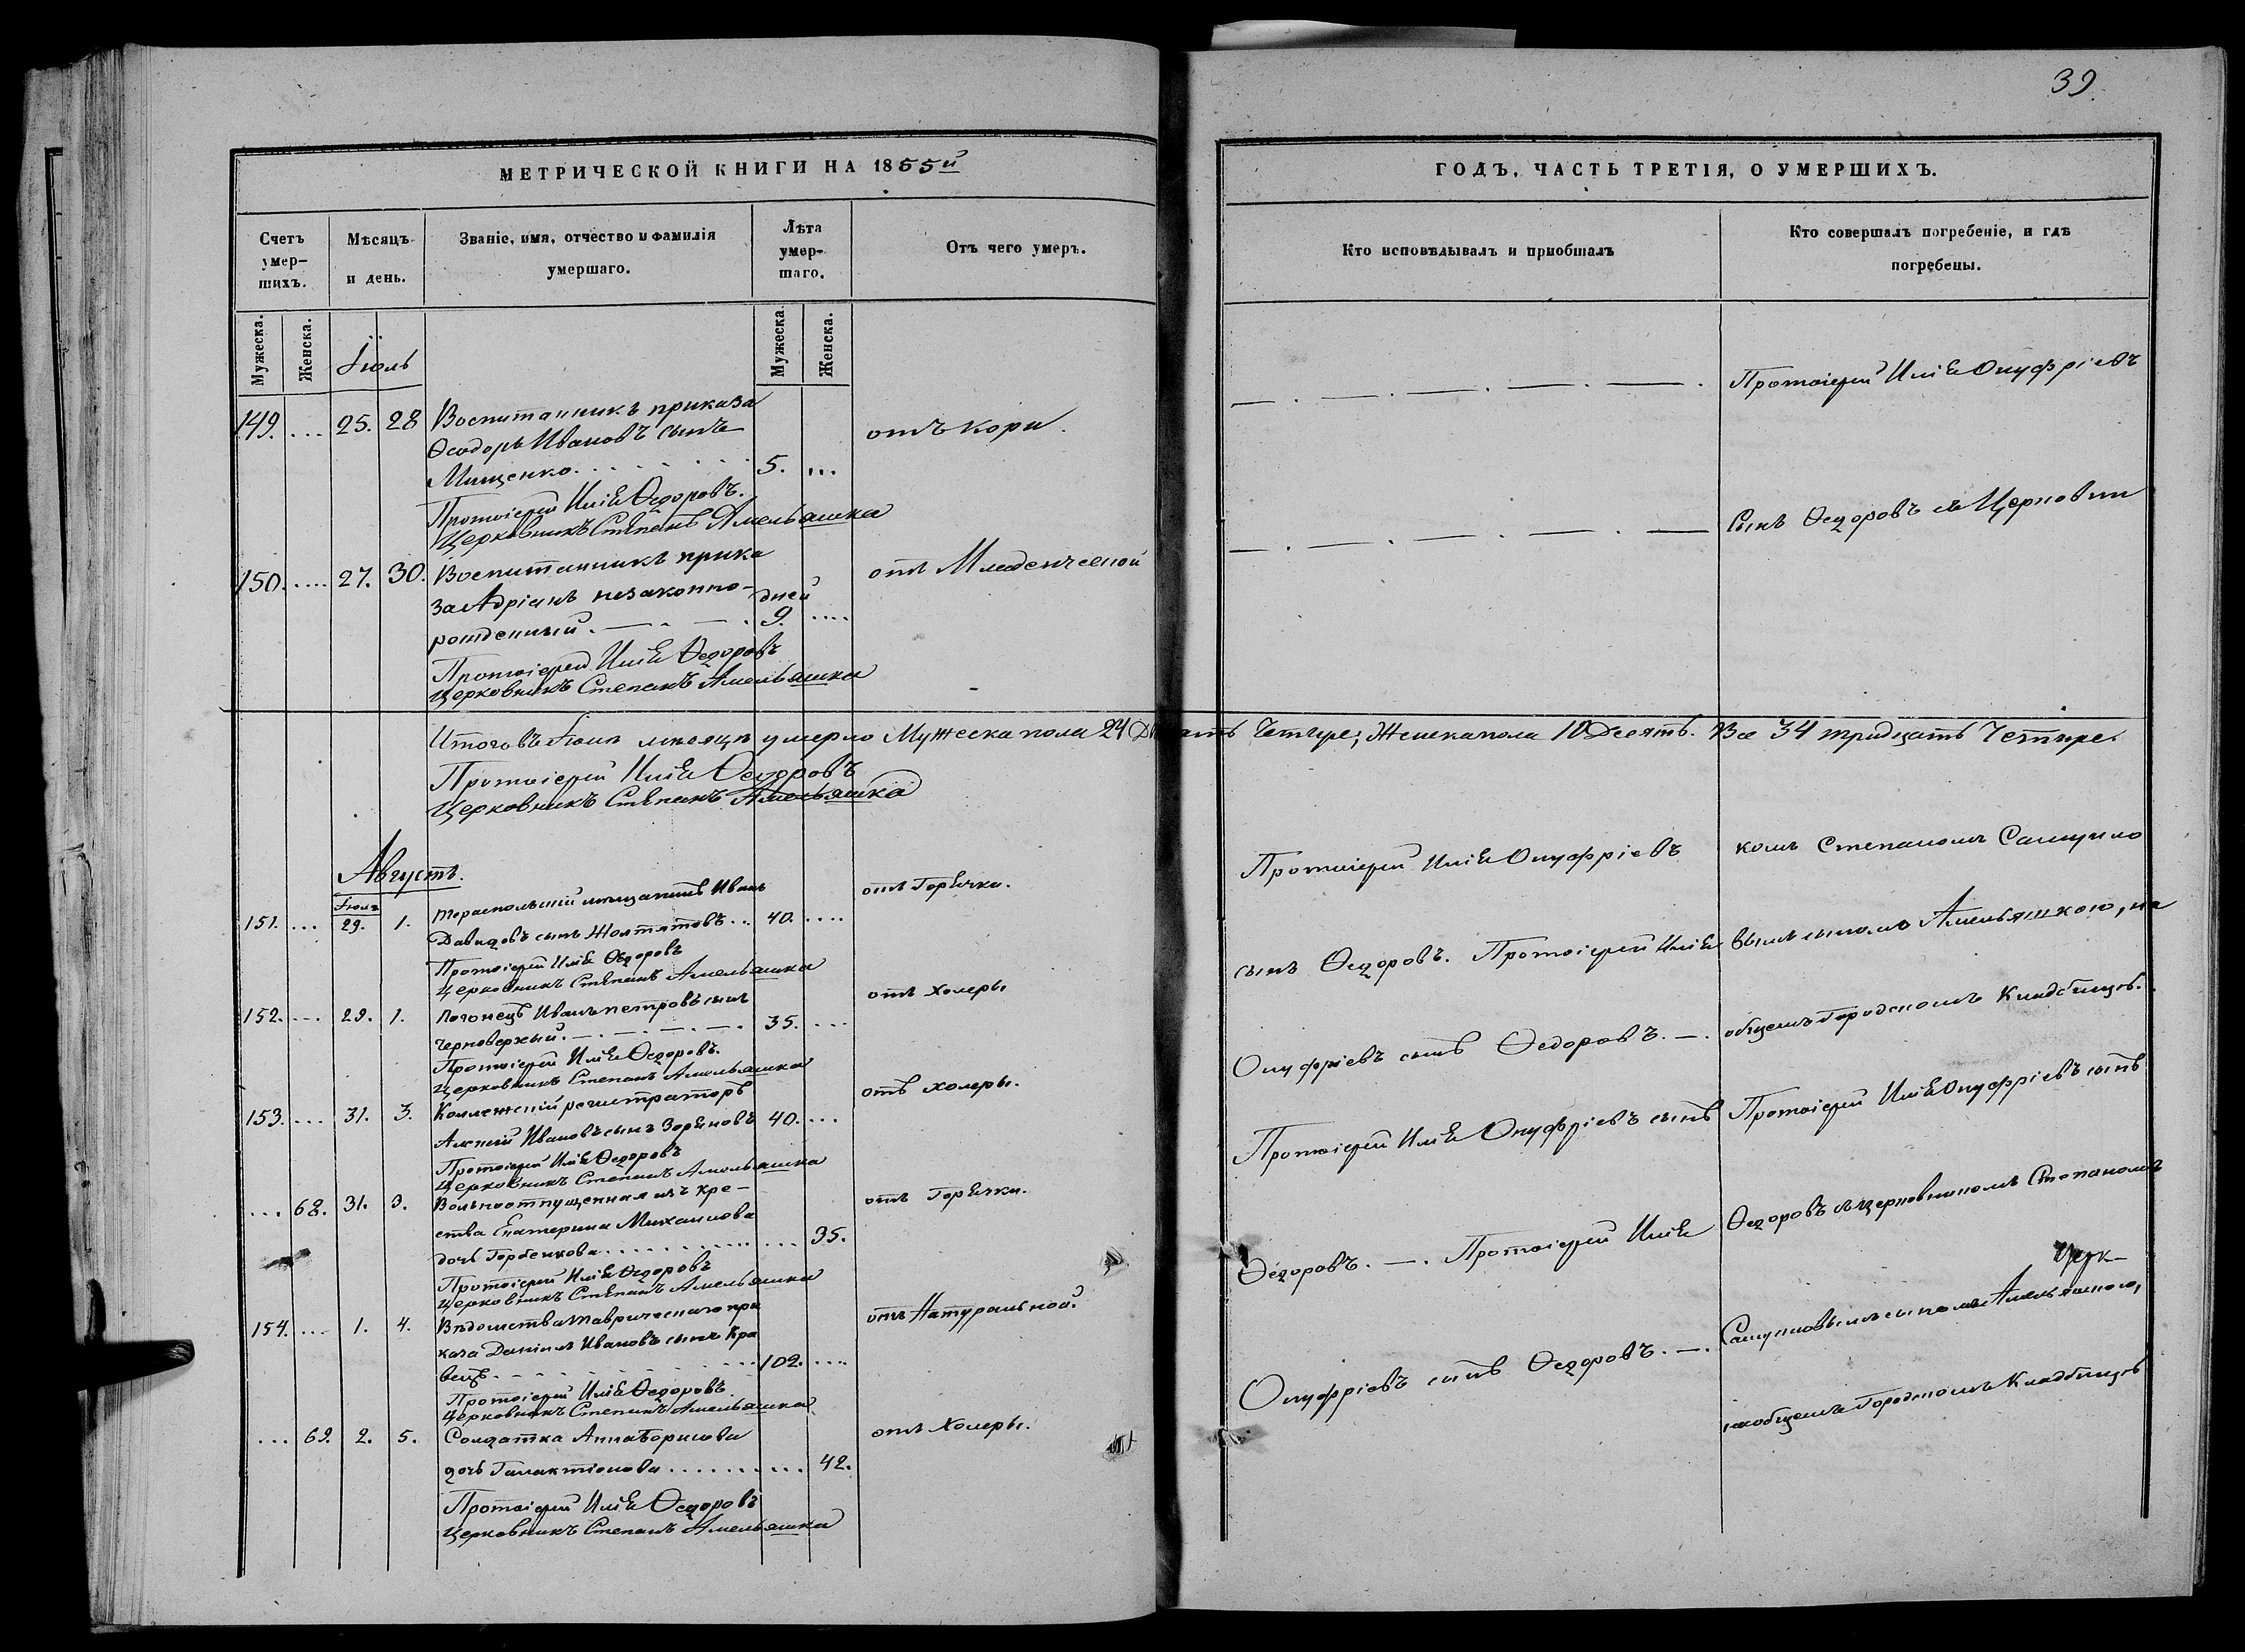 39.
МЕТРИЧЕСКОЙ КНИГИ НА 1855й
Счетъ умер-шихъ.
Мѣсяцъ и день.
Званіе, имя, отчество и фамилія умершаго.
Лѣта умер-шаго.
Отъ чего умеръ.
Мужеска.
Женска.
Іюль
Мужеска.
Женска.
149. ... 25. 28 Воспитанникъ приказа
Ѳеодоръ Ивановъ сынъ отъ кори.
Мищенко. 5. ...
Протоіерей Илія Ѳедоровъ.
Церковникъ Степанъ Амельяшка
150. .... 27. 30. Воспитанникъ прика отъ Младенческой
за Адріанъ незаконно- дней
рожденный. 9. ....
Протоіерей Илія Ѳедоровъ
Церковникъ Степанъ Амельяшка
Итого въ Іюлѣ мѣсяцѣ умерло Мужеска пола 24 Двадцать Четыре; Женска пола 10 Десять. Все 34 тридцать Четыре.
Протоіерей Илія Ѳедоровъ
Церковникъ Степанъ Амельяшка
Августъ.
Іюль
151. ... 29. 1. Тераспольскій мѣщанинъ Иванъ отъ Горячки.
Давидовъ сынъ 40. ....
Протоіерей Илія Ѳедоровъ
Церковникъ Степанъ Амельяшка
152. ... 29. 1. Погонецъ Иванъ Петровъ сынъ отъ холеры
Черноверхый. 35. ...
Протоіерей Илія Ѳедоровъ.
Церковникъ Степанъ Амельяшка
153. ... 31. 3. Коллежскій регистраторъ отъ холеры.
Алексій Ивановъ сынъ 40. ...
Протоіерей Илія Ѳедоровъ
Церковникъ Степанъ Амельяшка
... 68. 31. 3. Вольноотпущенная изъ кре- отъ Горячки.
ства Екатерина Михаилова
дочь Горбенкова 35.
Протоіерей Илія Ѳедоровъ
Церковникъ Степанъ Амельяшка
154. ... 1. 4. Вѣдомства Таврическаго при отъ Натуральной.
каза Даніилъ Ивановъ сынъ Кра
вецъ. 102. ....
Протоіерей Илія Ѳедоровъ.
Церковникъ Степанъ Амельяшка
... 69. 2. 5. Солдатка Анна Борисова отъ Холеры.
дочь Галактіонова 42.
Протоіерей Илія Ѳедоровъ
Церковникъ Степанъ Амельяшка
ГОДЪ, ЧАСТЬ ТРЕТІЯ, О УМЕРШИХЪ.
Кто исповѣдывалъ и пріобщалъ
Кто совершалъ погребеніе, и гдѣ погребены.
Протоіерей Илія Онуфріевъ
Сынъ Ѳедоровъ съ Церковни
комъ Степаномъ Самуило
вымъ сыномъ Амельяшкою, на
общемъ Городскомъ Кладбищѣ.
Протоіерей Илія Онуфріевъ
сынъ Ѳедоровъ. Протоіерей Илія
Онуфріевъ сынъ Ѳедоровъ.
Протоіерей Илія Онуфріевъ сынъ
Ѳедоровъ. Протоіерей Илія
Онуфріевъ сынъ Ѳедоровъ.
Протоіерей Илія Онуфріевъ сынъ
Ѳедоровъ съ церковникомъ Степаномъ
Церк-
Самуиловымъ сыномъ Амельяшкою,
на общемъ Городскомъ Кладбищѣ